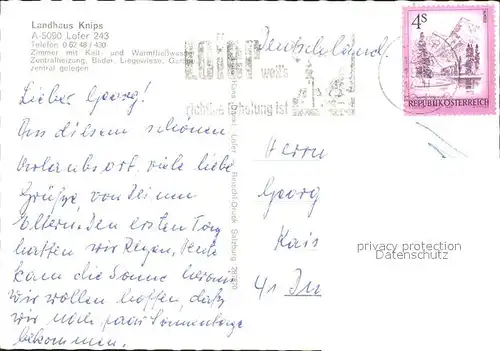 Landhaus Knips
A-5090 Lofer 243
Telefon 0 62 48 / 430
Zimmer mit Kalt- und Warmfließwasser
Zentralheizung, Bäder, Liegewiese,
zentral gelegen
Lofer
weiß
richtige Erholung ist
Deutschland
4S
REPUBLIK ÖSTERREICH
Lieber Georg!
Aus diesem schönen
Urlaubsort viele liebe
Grüße, von Deinen
Eltern. Den ersten Tag
hatten wir Regen, heute
kam die Sonne heraus
wir wollen hoffen, daß
wir noch paar Sonnentage
bekommen.
Lofer - Flexolit-Druck Salzburg
Herrn
Georg
Kais
41
privacy protection
Datenschutz